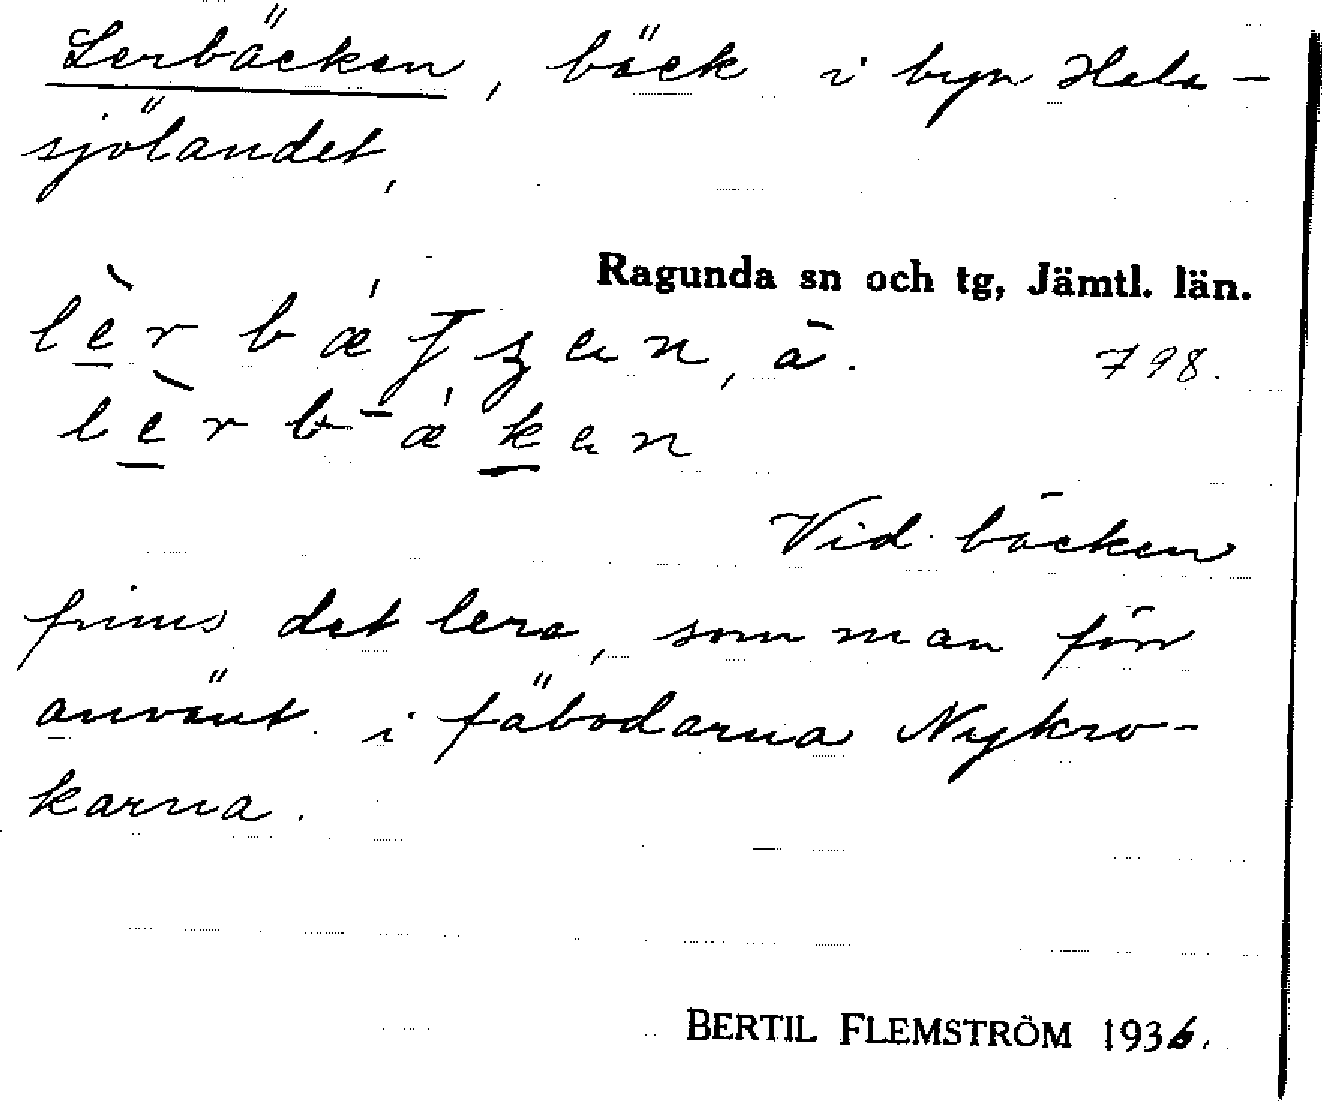 Lerbäcken, bäck i byn Hele-
sjölandet,
Ragunda sn och tg, Jämtl. län.
ä. 798.
Vid bäcken
finns det lera, som man förr
använt i fäbodarna Nykro-
karna.
BERTIL FLEMSTRÖM 1936.